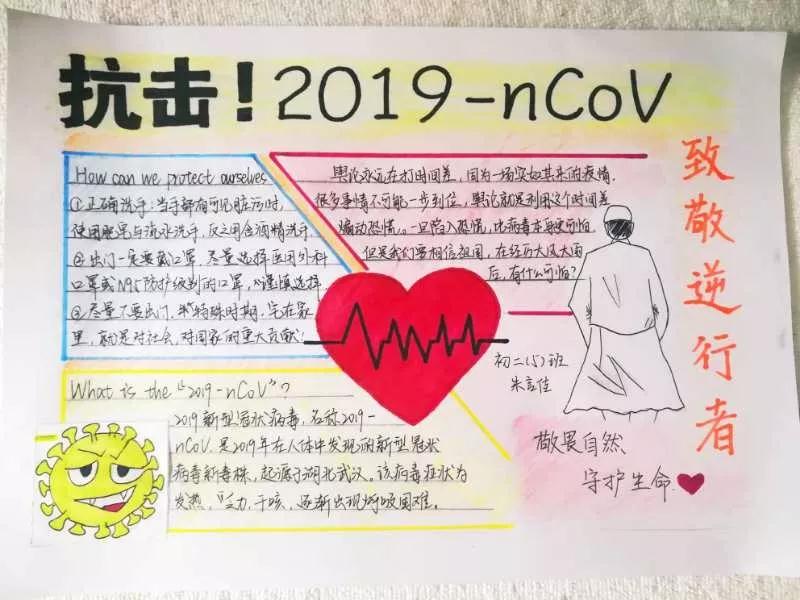 抗击!2019-nCoV
How can we protect ourselves
①正确洗手:当手部有可见脏污时,
使用肥皂与流水洗手,反之用含酒精洗手
②出门一定要戴口罩,尽量选择医用外科
口罩或N95防护级别的口罩,谨慎选择
③尽量不要出门,特殊时期,宅在家
里,就是对社会,对国家的重大贡献!
舆论永远在打时间差,因为一场突如其来的疫情,
很多事情不可能一步到位,舆论就是利用这个时间差
煽动恐慌。一旦陷入恐慌,比病毒本身更可怕
但是我们要相信祖国,在经历大风大雨
后,有什么可怕?
致敬逆行者
初二(5)班
朱言佳
What is the "2019-nCoV"?
2019新型冠状病毒,名称2019-
nCoV,是2019年在人体中发现的新型冠状
病毒新毒株,起源于湖北武汉。该病毒症状为
发热,乏力,干咳,逐渐出现呼吸困难。
敬畏自然
守护生命